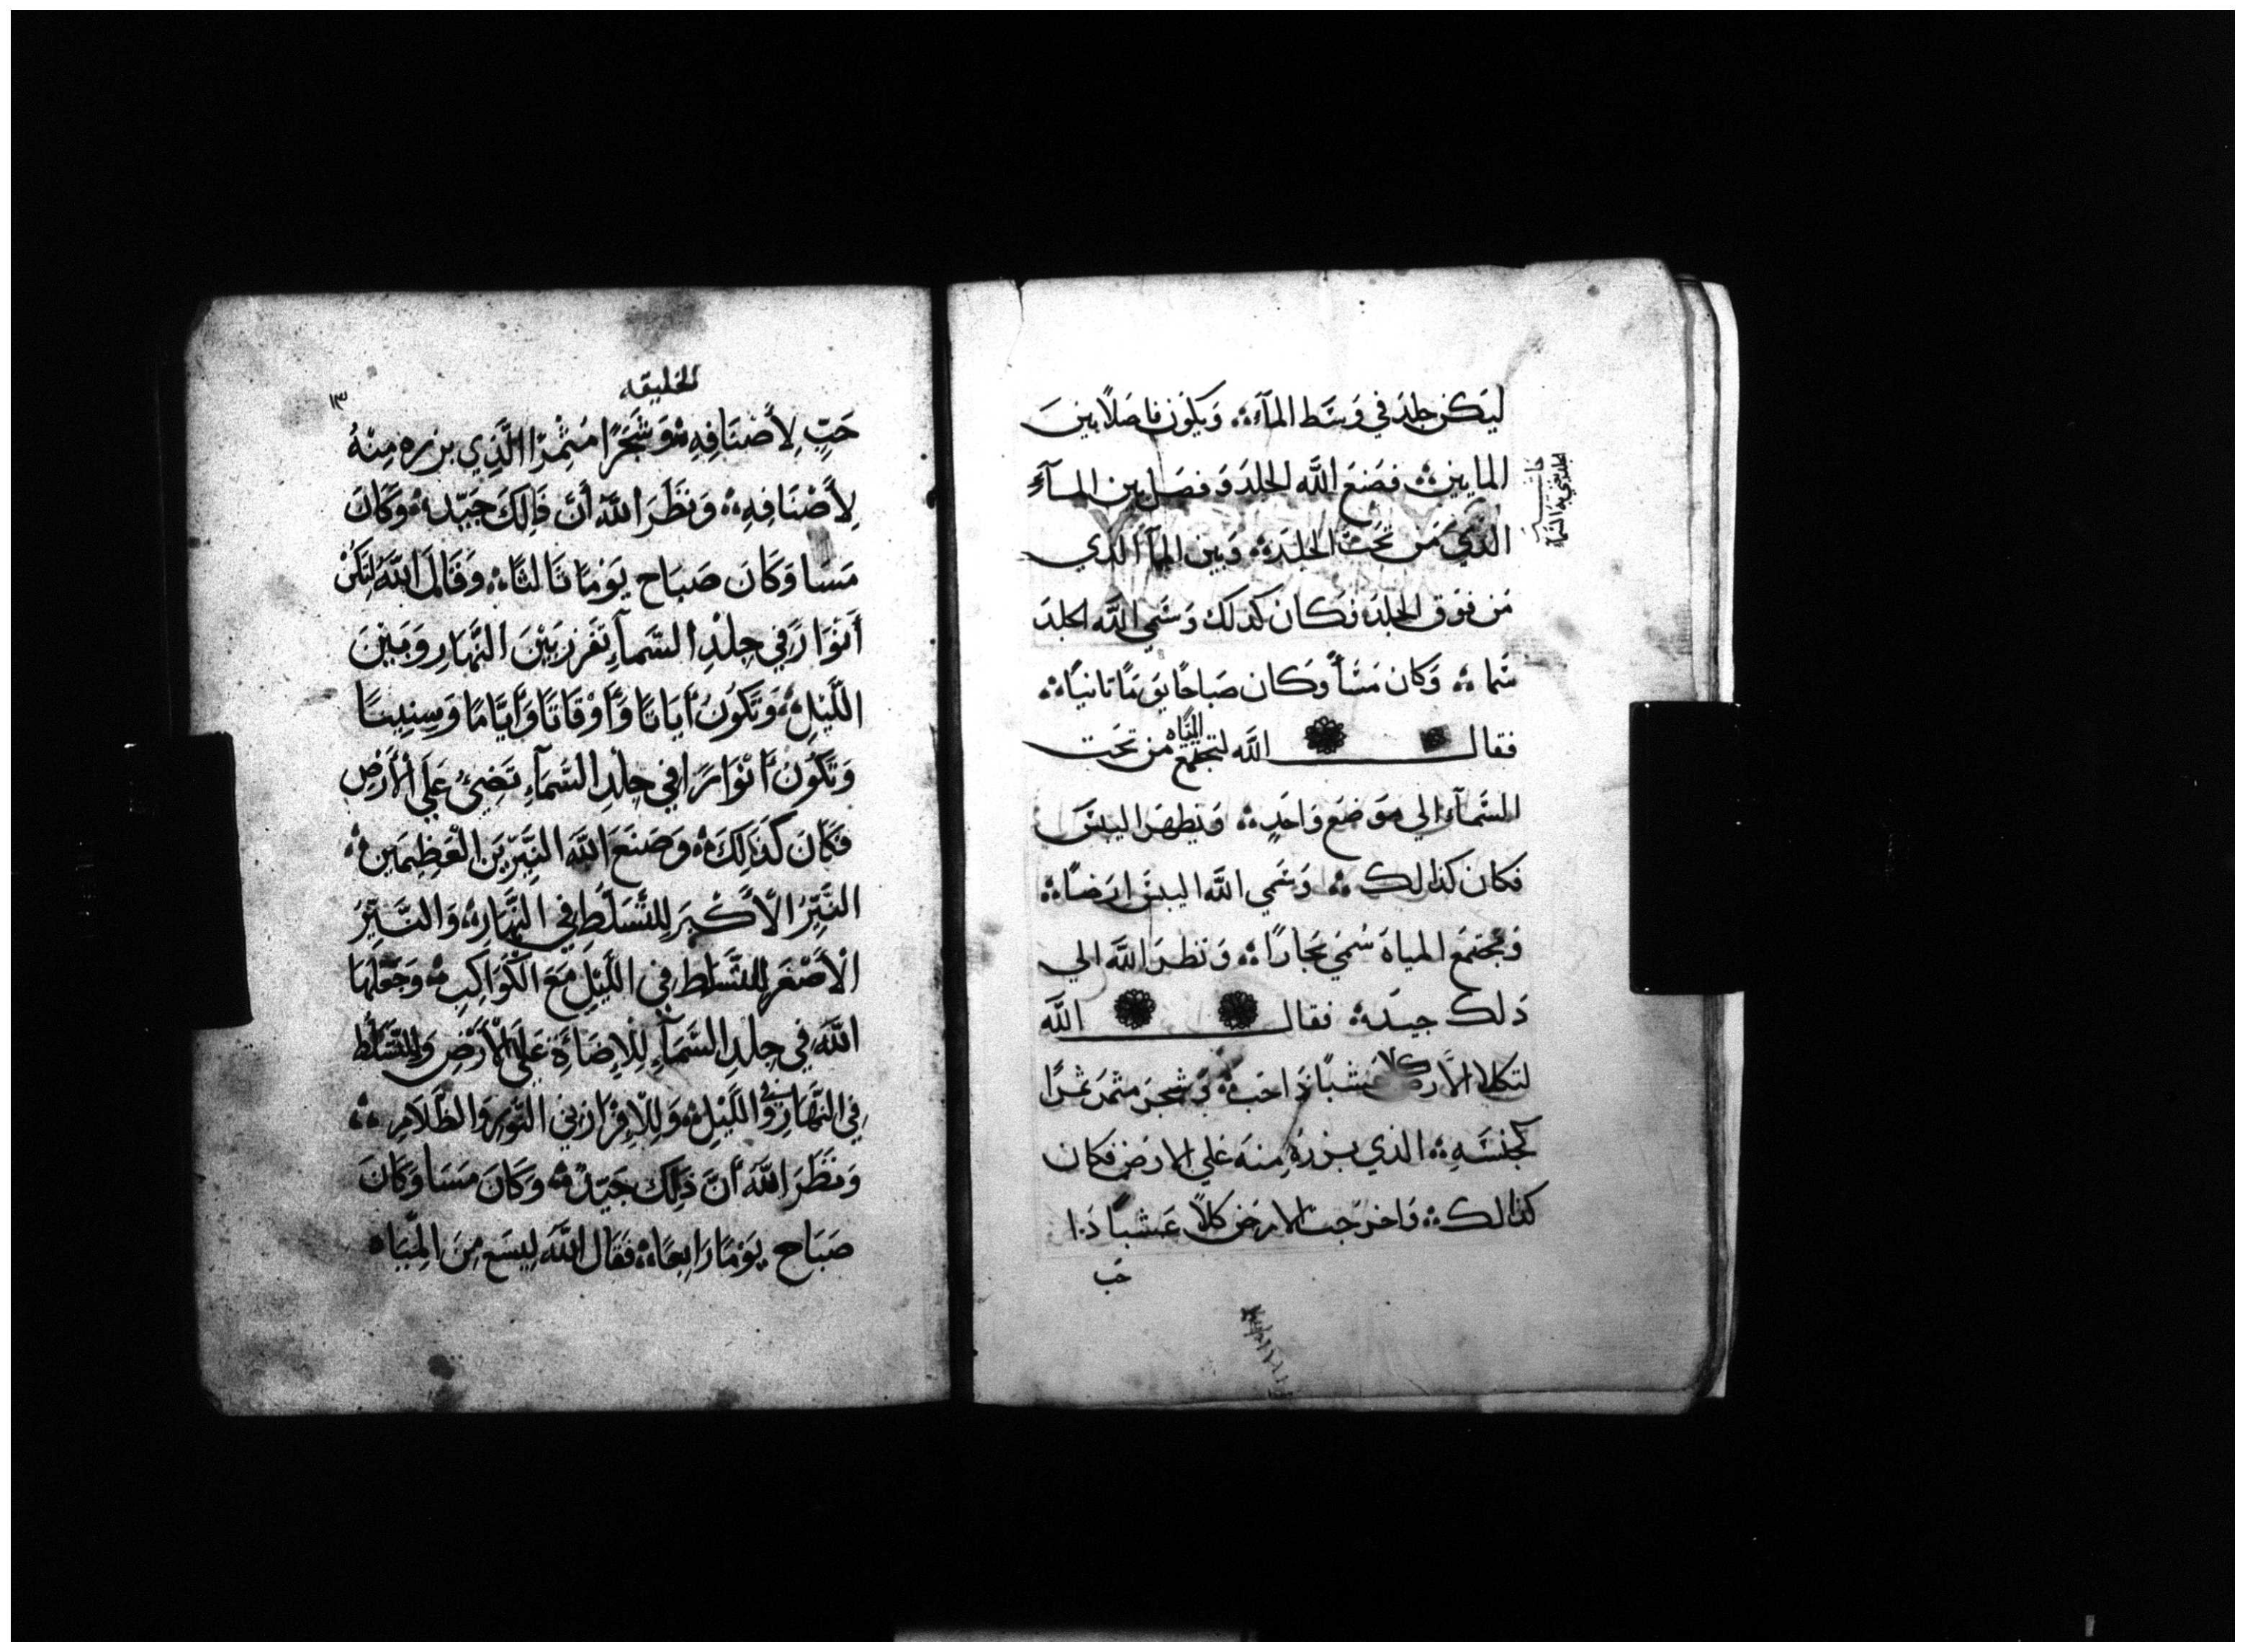 ليَكن جلدَ في وَسَط المآء؞ وَيكوُن فاصَلاً بينَ
المايين؞ فصَنعَ اللَّه الجلدَ وَفصَل بين المآءِ
الذيَ مَن تَحَت الجلدَ؞ وَبين المآ الذي
مَن فوَق الجلدَ فكان كدلك وَسَمي اللَّه الجلدَ
سَما؞ وَكان مَسَاً وَكان صَباحًا يوَمًا تانيًا؞
فقال اللَّه لتجتمع المَيَاه من تحَت
السَمآء الي موَضعَ وَاحَدٍ؞ وَتظهرَ اليبسَ
فكان كذالك؞ وَسَمي اللَّه اليبسَ ارَضًا؞
وَمجتمَع المياهَ سُمَي بَحارًا؞ وَنظرَ اللَّه الي
دَلك جيدَه؞ فقال اللَّه
لتكلا الأرض كلا عشبًا ذَا حَب؞ وَشجرَ مثمرَ ثمرًا
كجنسَهِ؞ الذي بزرَهُ مِنهَ عَلي الارَض فكان
كذالك؞ وَاخرَجت الارَض كلاً عَشباً دَا
حَب
الخليقه
١٣
حَبِّ لِأَصْنَافِهِ؞ وَشَجَرًا مُثْمِرًا الَّذِي بزره مِنْهُ
لِأَصْنَافِهِ؞ وَنظَرَ اللَّهَ أَنَّ ذَالِكَ جَيّد؞ وَكَانَ
مَسَا وَكَانَ صَبَاح يَوْمًا ثَالثًا؞ وَقَالَ اللَّهُ لتَكُنْ
أَنوَارً في جِلْدِ السَمآءِ تفَرز بَيْنَ النَّهَارِ وَبَيْنَ
اللَّيْلِ؞ وَتَكوُنُ أَيَاتًا وَأَوْقَاتًا وَأَيَّامًا وَسِنِينًا
وَتَكوُنُ أَنْوَارًا في جِلْدِ السَّمَآءِ تَضِيُ عَلَي الْأَرْضِ
فَكَانَ كَذَلِكَ؞ وَصَنَعَ اللَّهَ النَيِّرَيْن الْعَظِيمَين؞
النَيِّرُ الْأَكْبَر لِلتَّسَلّطِ فِي النَّهَار؞ وَالنَّيِّرُ
الْأَصْغَر لِلتَّسَلط فِي اللَّيْلِ مَعَ الْكَوَاكِبِ؞ وَجَعَلَهَا
اللَّهَ فِي جِلدِ السَّمَآءِ لِلْإِضَاءَةِ عَلَي الْأَرْضِ وَللتَّسَلُّط
فِي النَّهَارِ وَفي اللَّيْلِ؞ وَلِلْإِفْرَاز بَينِ النَّورِ وَالظَّلَامِ؞
وَنَظَرَ اللَّهَ أَنَّ ذَلِك جَيّد؞ وَكَانَ مَسَا وَكَانَ
صَبَاح يَوْمًا رَابِعًا؞ فَقَال اللَّهَ لِيسَعَ مِنَ الْمِيَاه